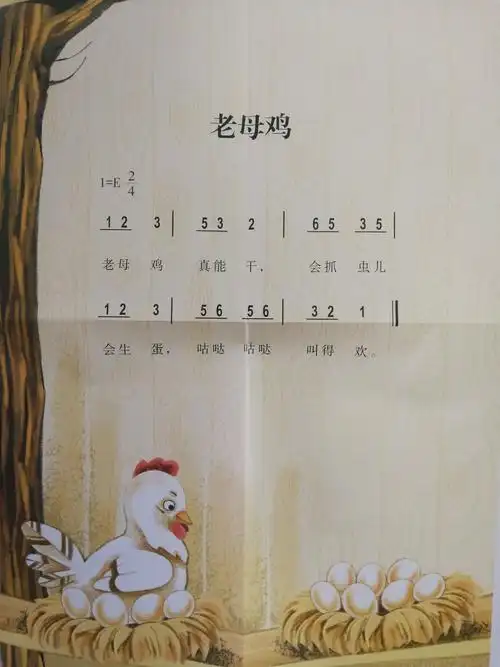 老母鸡
1=E 2/4
1 2 3 | 5 3 2 | 6 5 3 5 |
老母 鸡 真能 干， 会抓 虫儿
1 2 3 | 5 6 5 6 | 3 2 1 ‖
会生 蛋， 咕哒 咕哒 叫得 欢。